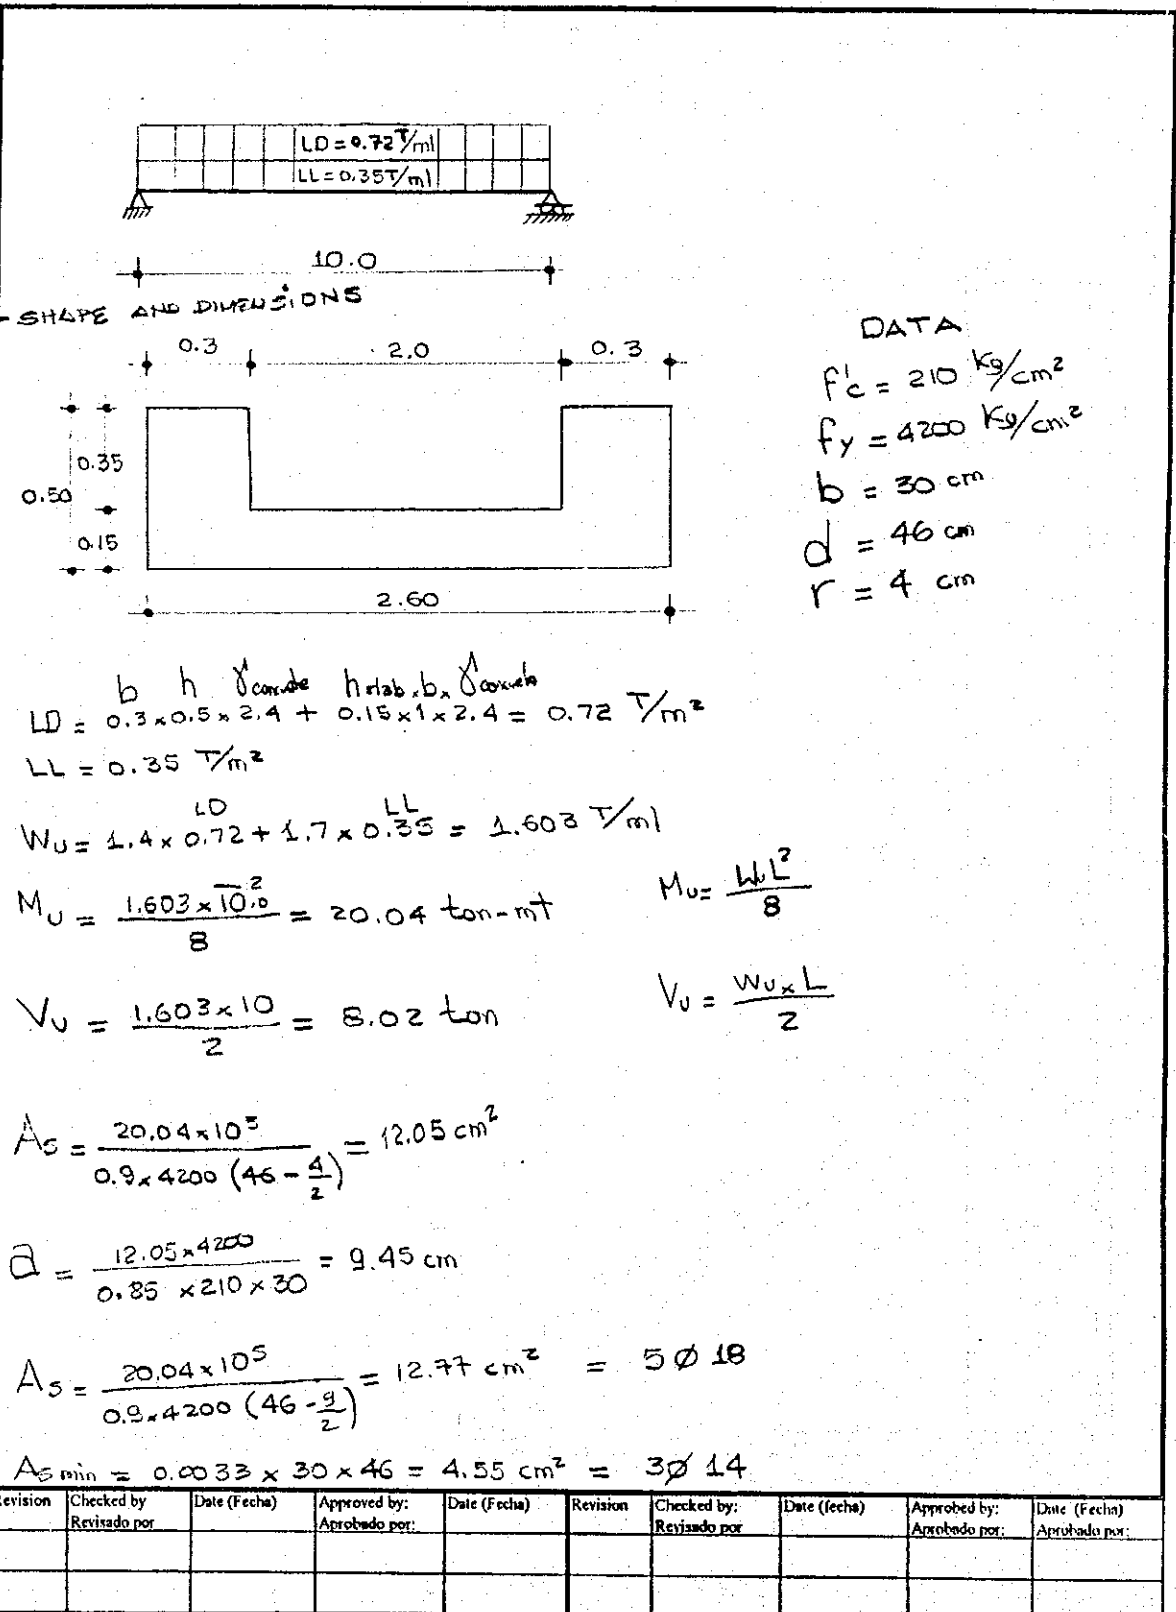 LD = 0.72 T/ml
LL = 0.35 T/ml
10.0
- SHAPE AND DIMENSIONS
0.3 2.0 0.3
0.35
0.50
0.15
2.60
DATA
f'c = 210 Kg/cm²
fy = 4200 Kg/cm²
b = 30 cm
d = 46 cm
r = 4 cm
b h γconcrete hslab x b x γconcreto
LD = 0.3 x 0.5 x 2.4 + 0.15 x 1 x 2.4 = 0.72 T/m²
LL = 0.35 T/m²
LD LL
WU = 1.4 x 0.72 + 1.7 x 0.35 = 1.603 T/ml
MU = 1.603 x 10.0² / 8 = 20.04 ton-mt
MU = WUL² / 8
VU = 1.603 x 10 / 2 = 8.02 ton
VU = WU x L / 2
AS = 20.04 x 10⁵ / 0.9 x 4200 (46 - 4/2) = 12.05 cm²
a = 12.05 x 4200 / 0.85 x 210 x 30 = 9.45 cm
AS = 20.04 x 10⁵ / 0.9 x 4200 (46 - 9/2) = 12.77 cm² = 5 Ø 18
AS min = 0.0033 x 30 x 46 = 4.55 cm² = 3Ø 14
evision Checked by Date (Fecha) Approved by: Date (Fecha) Revision Checked by: Date (fecha) Approbed by: Date (Fecha)
Revisado por Aprobado por: Revisado por Aprobado por: Aprobado por: